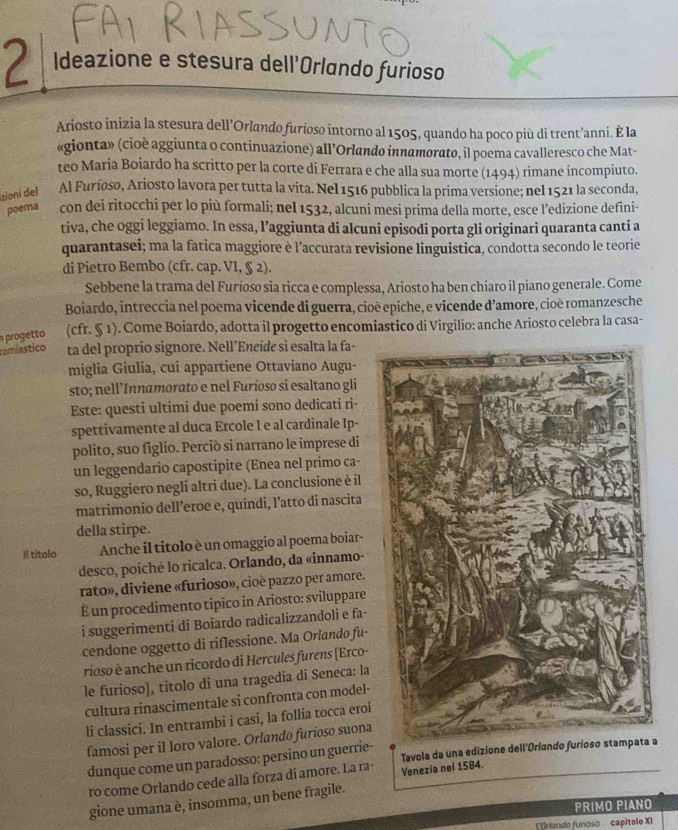 FAI RIASSUNTO
2 Ideazione e stesura dell'Orlando furioso
Ariosto inizia la stesura dell'Orlando furioso intorno al 1505, quando ha poco più di trent'anni. È la
«gionta» (cioè aggiunta o continuazione) all'Orlando innamorato, il poema cavalleresco che Mat-
teo Maria Boiardo ha scritto per la corte di Ferrara e che alla sua morte (1494) rimane incompiuto.
zioni del
poema
Al Furioso, Ariosto lavora per tutta la vita. Nel 1516 pubblica la prima versione; nel 1521 la seconda,
con dei ritocchi per lo più formali; nel 1532, alcuni mesi prima della morte, esce l'edizione defini-
tiva, che oggi leggiamo. In essa, l'aggiunta di alcuni episodi porta gli originari quaranta canti a
quarantasei; ma la fatica maggiore è l'accurata revisione linguistica, condotta secondo le teorie
di Pietro Bembo (cfr. cap. VI, § 2).
Sebbene la trama del Furioso sia ricca e complessa, Ariosto ha ben chiaro il piano generale. Come
Boiardo, intreccia nel poema vicende di guerra, cioè epiche, e vicende d'amore, cioè romanzesche
n progetto
comiastico
(cfr. § 1). Come Boiardo, adotta il progetto encomiastico di Virgilio: anche Ariosto celebra la casa-
ta del proprio signore. Nell'Eneide si esalta la fa-
miglia Giulia, cui appartiene Ottaviano Augu-
sto; nell'Innamorato e nel Furioso si esaltano gli
Este: questi ultimi due poemi sono dedicati ri-
spettivamente al duca Ercole I e al cardinale Ip-
polito, suo figlio. Perciò si narrano le imprese di
un leggendario capostipite (Enea nel primo ca-
so, Ruggiero negli altri due). La conclusione è il
matrimonio dell'eroe e, quindi, l'atto di nascita
della stirpe.
Il titolo
Anche il titolo è un omaggio al poema boiar-
desco, poiché lo ricalca. Orlando, da «innamo-
rato», diviene «furioso», cioè pazzo per amore.
È un procedimento tipico in Ariosto: sviluppare
i suggerimenti di Boiardo radicalizzandoli e fa-
cendone oggetto di riflessione. Ma Orlando fu-
rioso è anche un ricordo di Hercules furens [Erco-
le furioso], titolo di una tragedia di Seneca: la
cultura rinascimentale si confronta con model-
li classici. In entrambi i casi, la follia tocca eroi
famosi per il loro valore. Orlando furioso suona
dunque come un paradosso: persino un guerrie-
ro come Orlando cede alla forza di amore. La ra-
gione umana è, insomma, un bene fragile.
Tavola da una edizione dell'Orlando furioso stampata a
Venezia nel 1584.
PRIMO PIANO
L'Orlando furioso capitolo XI